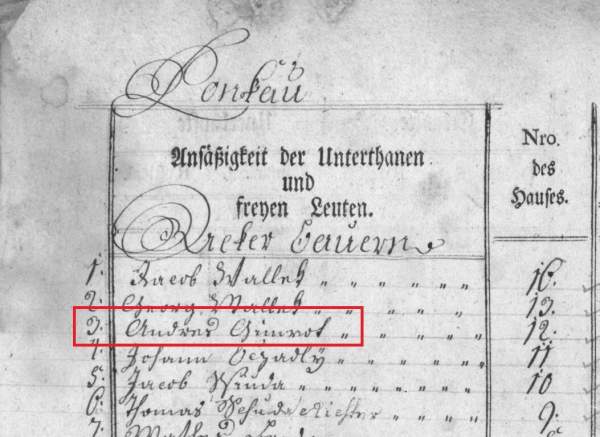 Lonkau
Ansäßigkeit der Unterthanen
und
freyen Leuten.
Nro.
des
Hauses.
Acker Bauern
1. Jacob Wallek " " " " " 16.
2. Georg Wallek " " " " " 13.
3. Andres Gimrot " " " " " 12.
4. Johann Oczadly " " " " " 11
5. Jacob " " " " " 10
6. Thomas Richter " " " 9.
7.